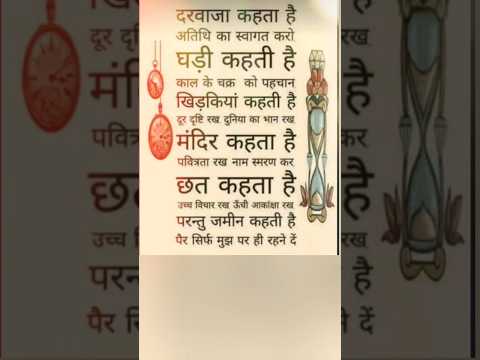 दरवाजा कहता है
अतिथि का स्वागत करो
घड़ी कहती है
काल के चक्र को पहचान
खिड़कियां कहती है
दूर दृष्टि रख दुनिया का भान रख
मंदिर कहता है
पवित्रता रख नाम स्मरण कर
छत कहता है
उच्च विचार रख ऊँची आकांक्षा रख
परन्तु जमीन कहती है
पैर सिर्फ मुझ पर ही रहने दें